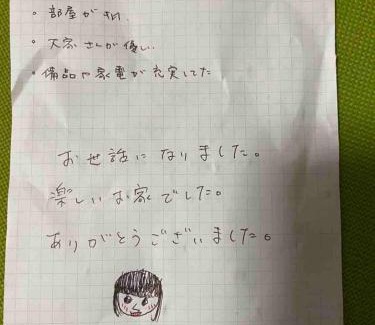 ・部屋がきれい.
・大家さんが優しい.
・備品や家電が充実してた
お世話になりました。
楽しいお家でした。
ありがとうございました。